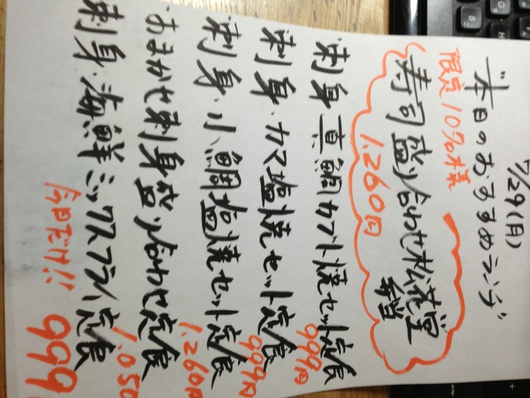 7/29(月)
本日のおすすめランチ
限定10名様
寿司盛り合わせ松花堂弁当
1,260円
刺身 真鯛カブト焼セット定食
999円
刺身・カマ塩焼セット定食
999円
刺身・小鯛塩焼セット定食
1,260円
おまかせ刺身盛り合わせ定食
1,050
刺身・海鮮ミックスフライ定食
今日だけ!! 999